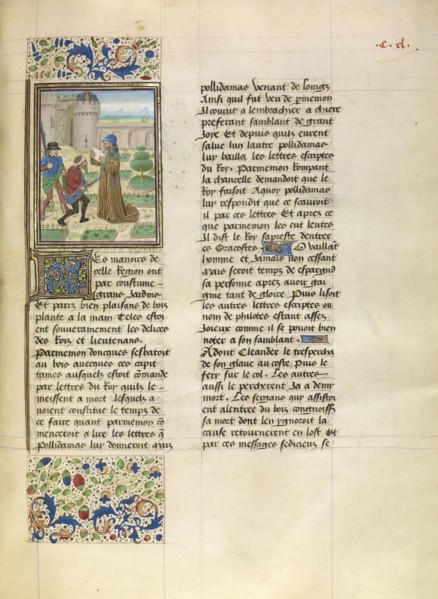 .C. xl.
Les manoirs de
celle Region ont
par coustume
grans Jardins
Et parcz bien plaisans de bois
plante a la main Celes estoi
ent souverainement les delices
des Roiz et lieutenans.
Parmenion doncques sesbatoit
au bois avecques ces capit
taines ausquelz estoit comande
par lettres du Roy quilz le
meissent a mort lesquelz a
uoient constitue le temps de
ce faire quant parmenion com
menceroit a lire les lettres que
pollidamas luy donneroit Mais
pollidamas venant de loingz
Ainsi quil fut veu de parmenion
Il courut a lembrachier a chiere
preferant samblant de grant
Joye Et depuis quilz eurent
salue lun lautre pollidamas
luy bailla les lettres escriptes
du Roy. Parmenion Rompant
la chancelle demandoit que le
Roy faisoit Aquoy pollidamas
luy respondit que ce scauroit
il par ces lettres Et apres ce
que parmenion les eut leutes
Il dist le Roy sapreste dentrer
es Dracostes O vaillant
homme et Jamais non cessant
Mais seroit temps de espargnier
sa personne apres avoir gai
gnie tant de gloire Puis lisoit
les autres lettres escriptes ou
nom de philotes estant assez
Joieux comme il se povoit bien
noter a son samblant.
Adont Cleander le tresperche
de son glaive au coste. Puis le
fery sur le col. Les autres
aussi le percherent Ja a demy
mort. Les sergans qui assistoi
ent alentree du bois congnoissans
sa mort dont len ygnoroit la
cause retournerent en lost Et
par ces messages sedicieux se